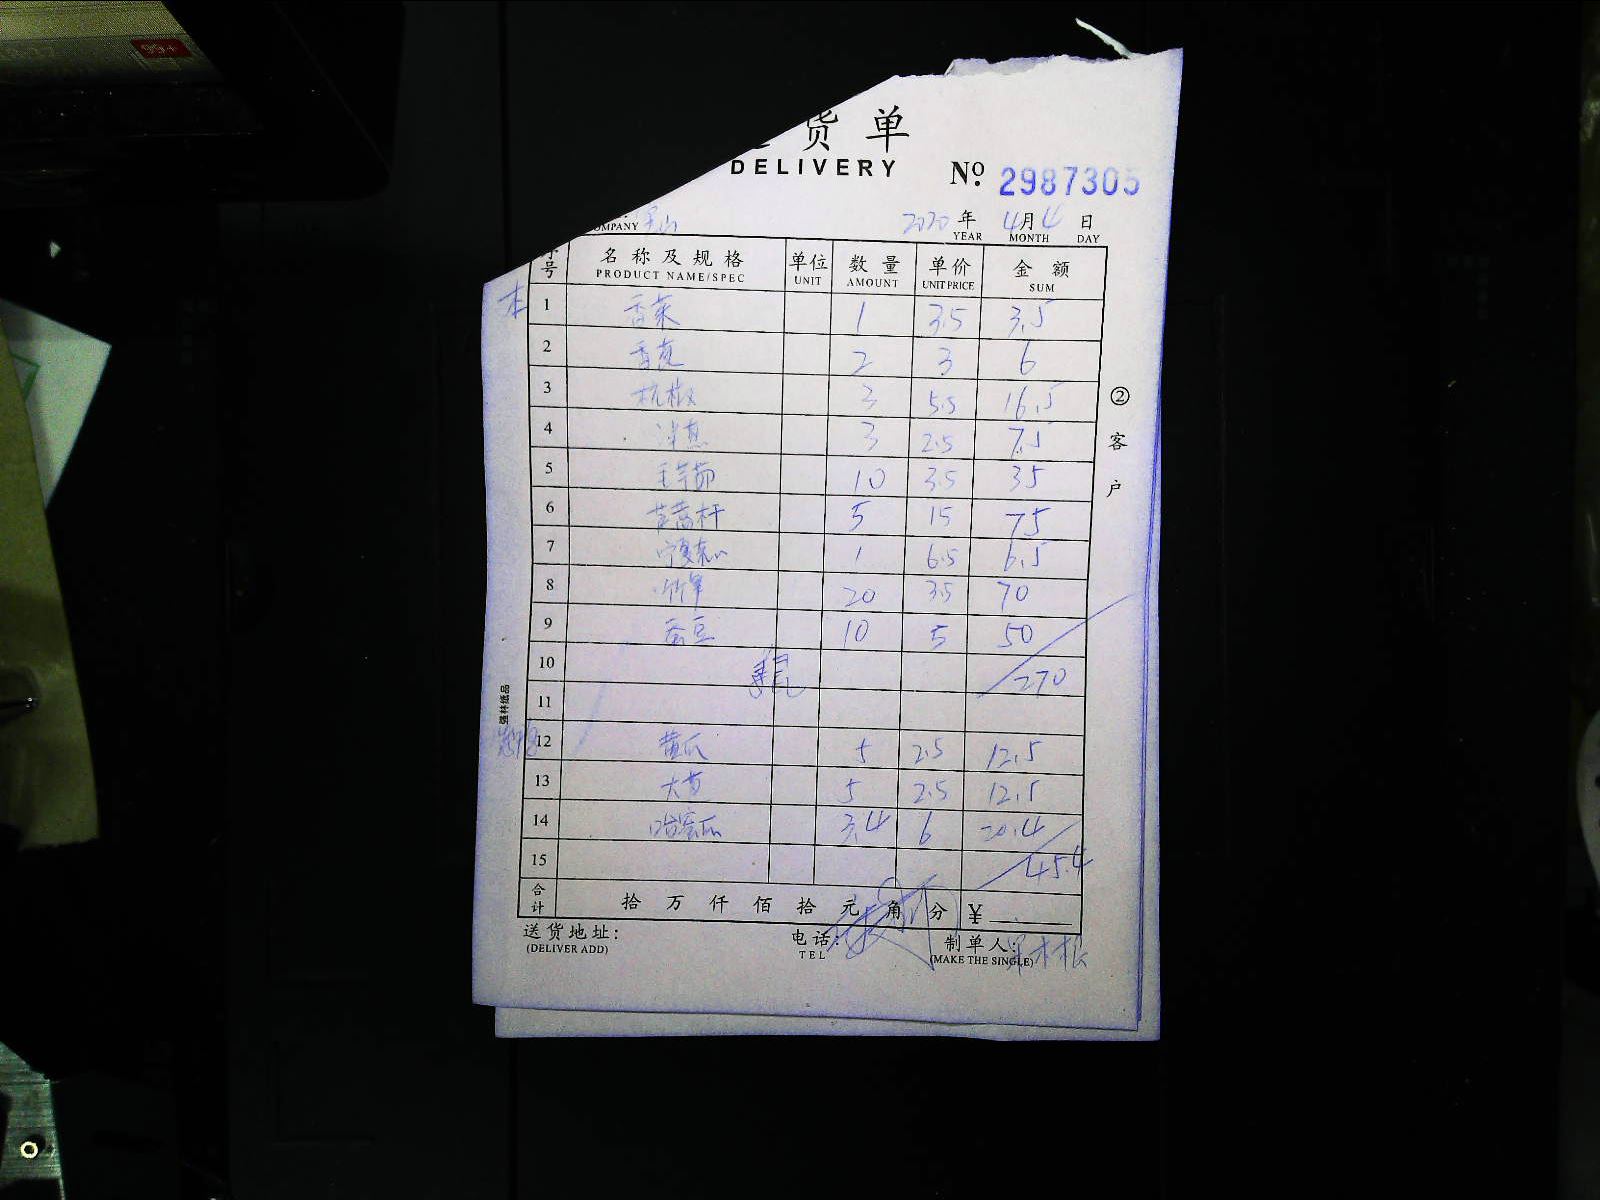 99+
货单
DELIVERY № 2987305
OMPANY 2020 年 4月4 日
YEAR MONTH DAY
号 名称及规格 单位 数量 单价 金额
PRODUCT NAME/SPEC UNIT AMOUNT UNIT PRICE SUM
1 香菜 1 3.5 3.5
2 香葱 2 3 6
3 杭椒 3 5.5 16.5
4 3 2.5 7.5
5 毛芋艿 10 3.5 35
6 杆 5 15 75
7 1 6.5 6.5
8 竹笋 20 3.5 70
9 蚕豆 10 5 50
10 270
11
12 黄瓜 5 2.5 12.5
13 大葱 5 2.5 12.5
14 哈密瓜 3.4 6 20.4
15 45.4
合计 拾 万 仟 佰 拾 元 角 分 ¥
送货地址: 电话: 制单人:
(DELIVER ADD) TEL (MAKE THE SINGLE)
② 客户
强林纸品